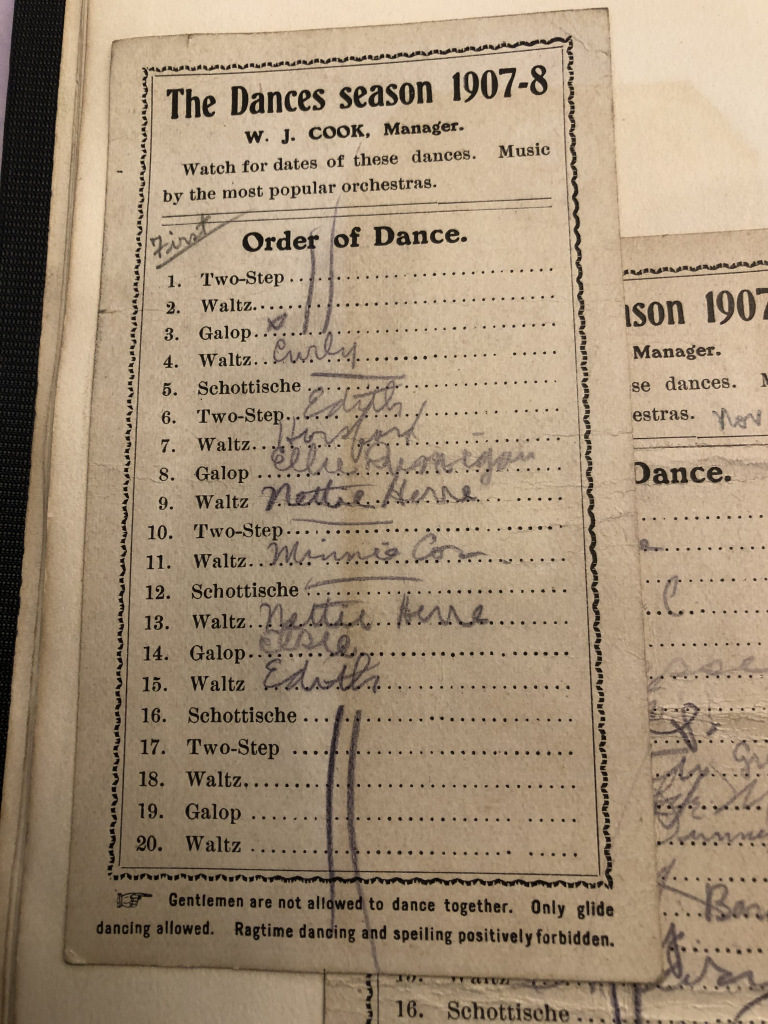 The Dances season 1907-8
W. J. COOK, Manager.
Watch for dates of these dances. Music
by the most popular orchestras.
First
Order of Dance.
1. Two-Step
2. Waltz
3. Galop
4. Waltz Curly
5. Schottische
6. Two-Step Edith
7. Waltz Horsford
8. Galop Ellie
9. Waltz Nettie Herre
10. Two-Step
11. Waltz Minnie Cox
12. Schottische
13. Waltz Nettie Herre
14. Galop Elsie
15. Waltz Edith
16. Schottische
17. Two-Step
18. Waltz
19. Galop
20. Waltz
Gentlemen are not allowed to dance together. Only glide
dancing allowed. Ragtime dancing and speiling positively forbidden.
ason 1907
Manager.
se dances.
estras. Nov
Dance.
C
15. Waltz
16. Schottische